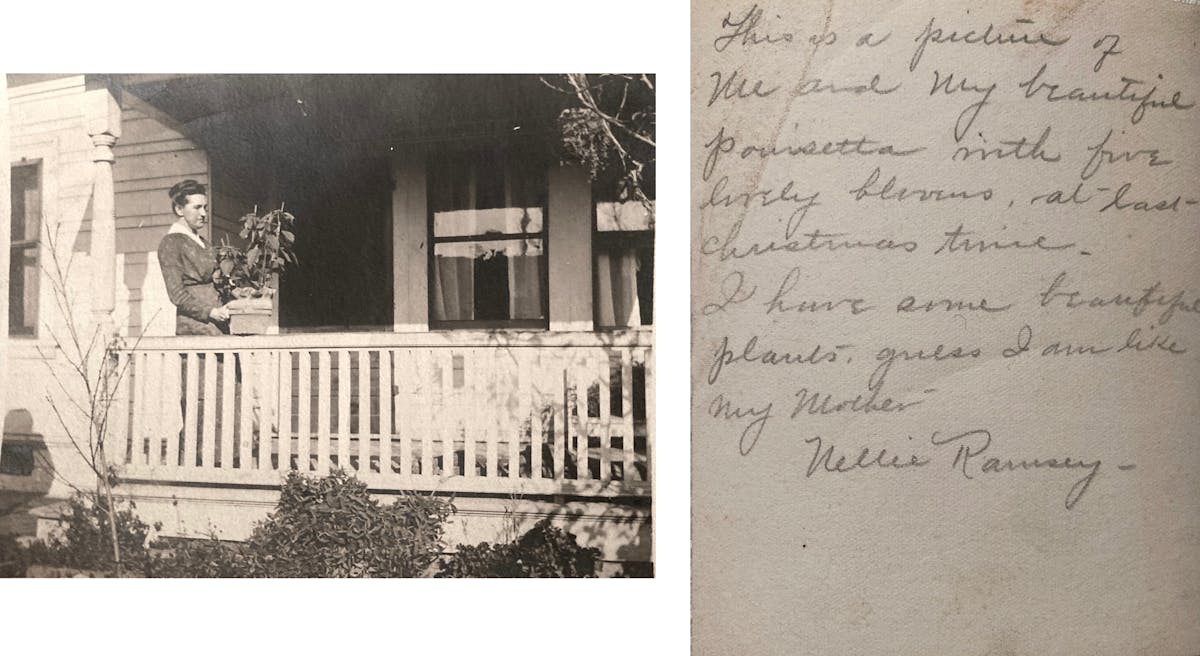 This is a picture of
Me and My beautiful
poinsetta with five
lovely blooms, at last
christmas time.
I have some beautiful
plants. guess I am like
my Mother
Nellie Ramsey-